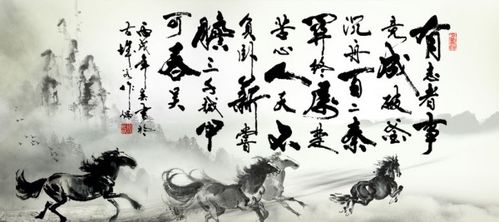 有志者事
竟成破釜
沉舟百二秦
關終属楚
苦心人天不
負卧薪嘗
膽三千越甲
可吞吴
丙戌年